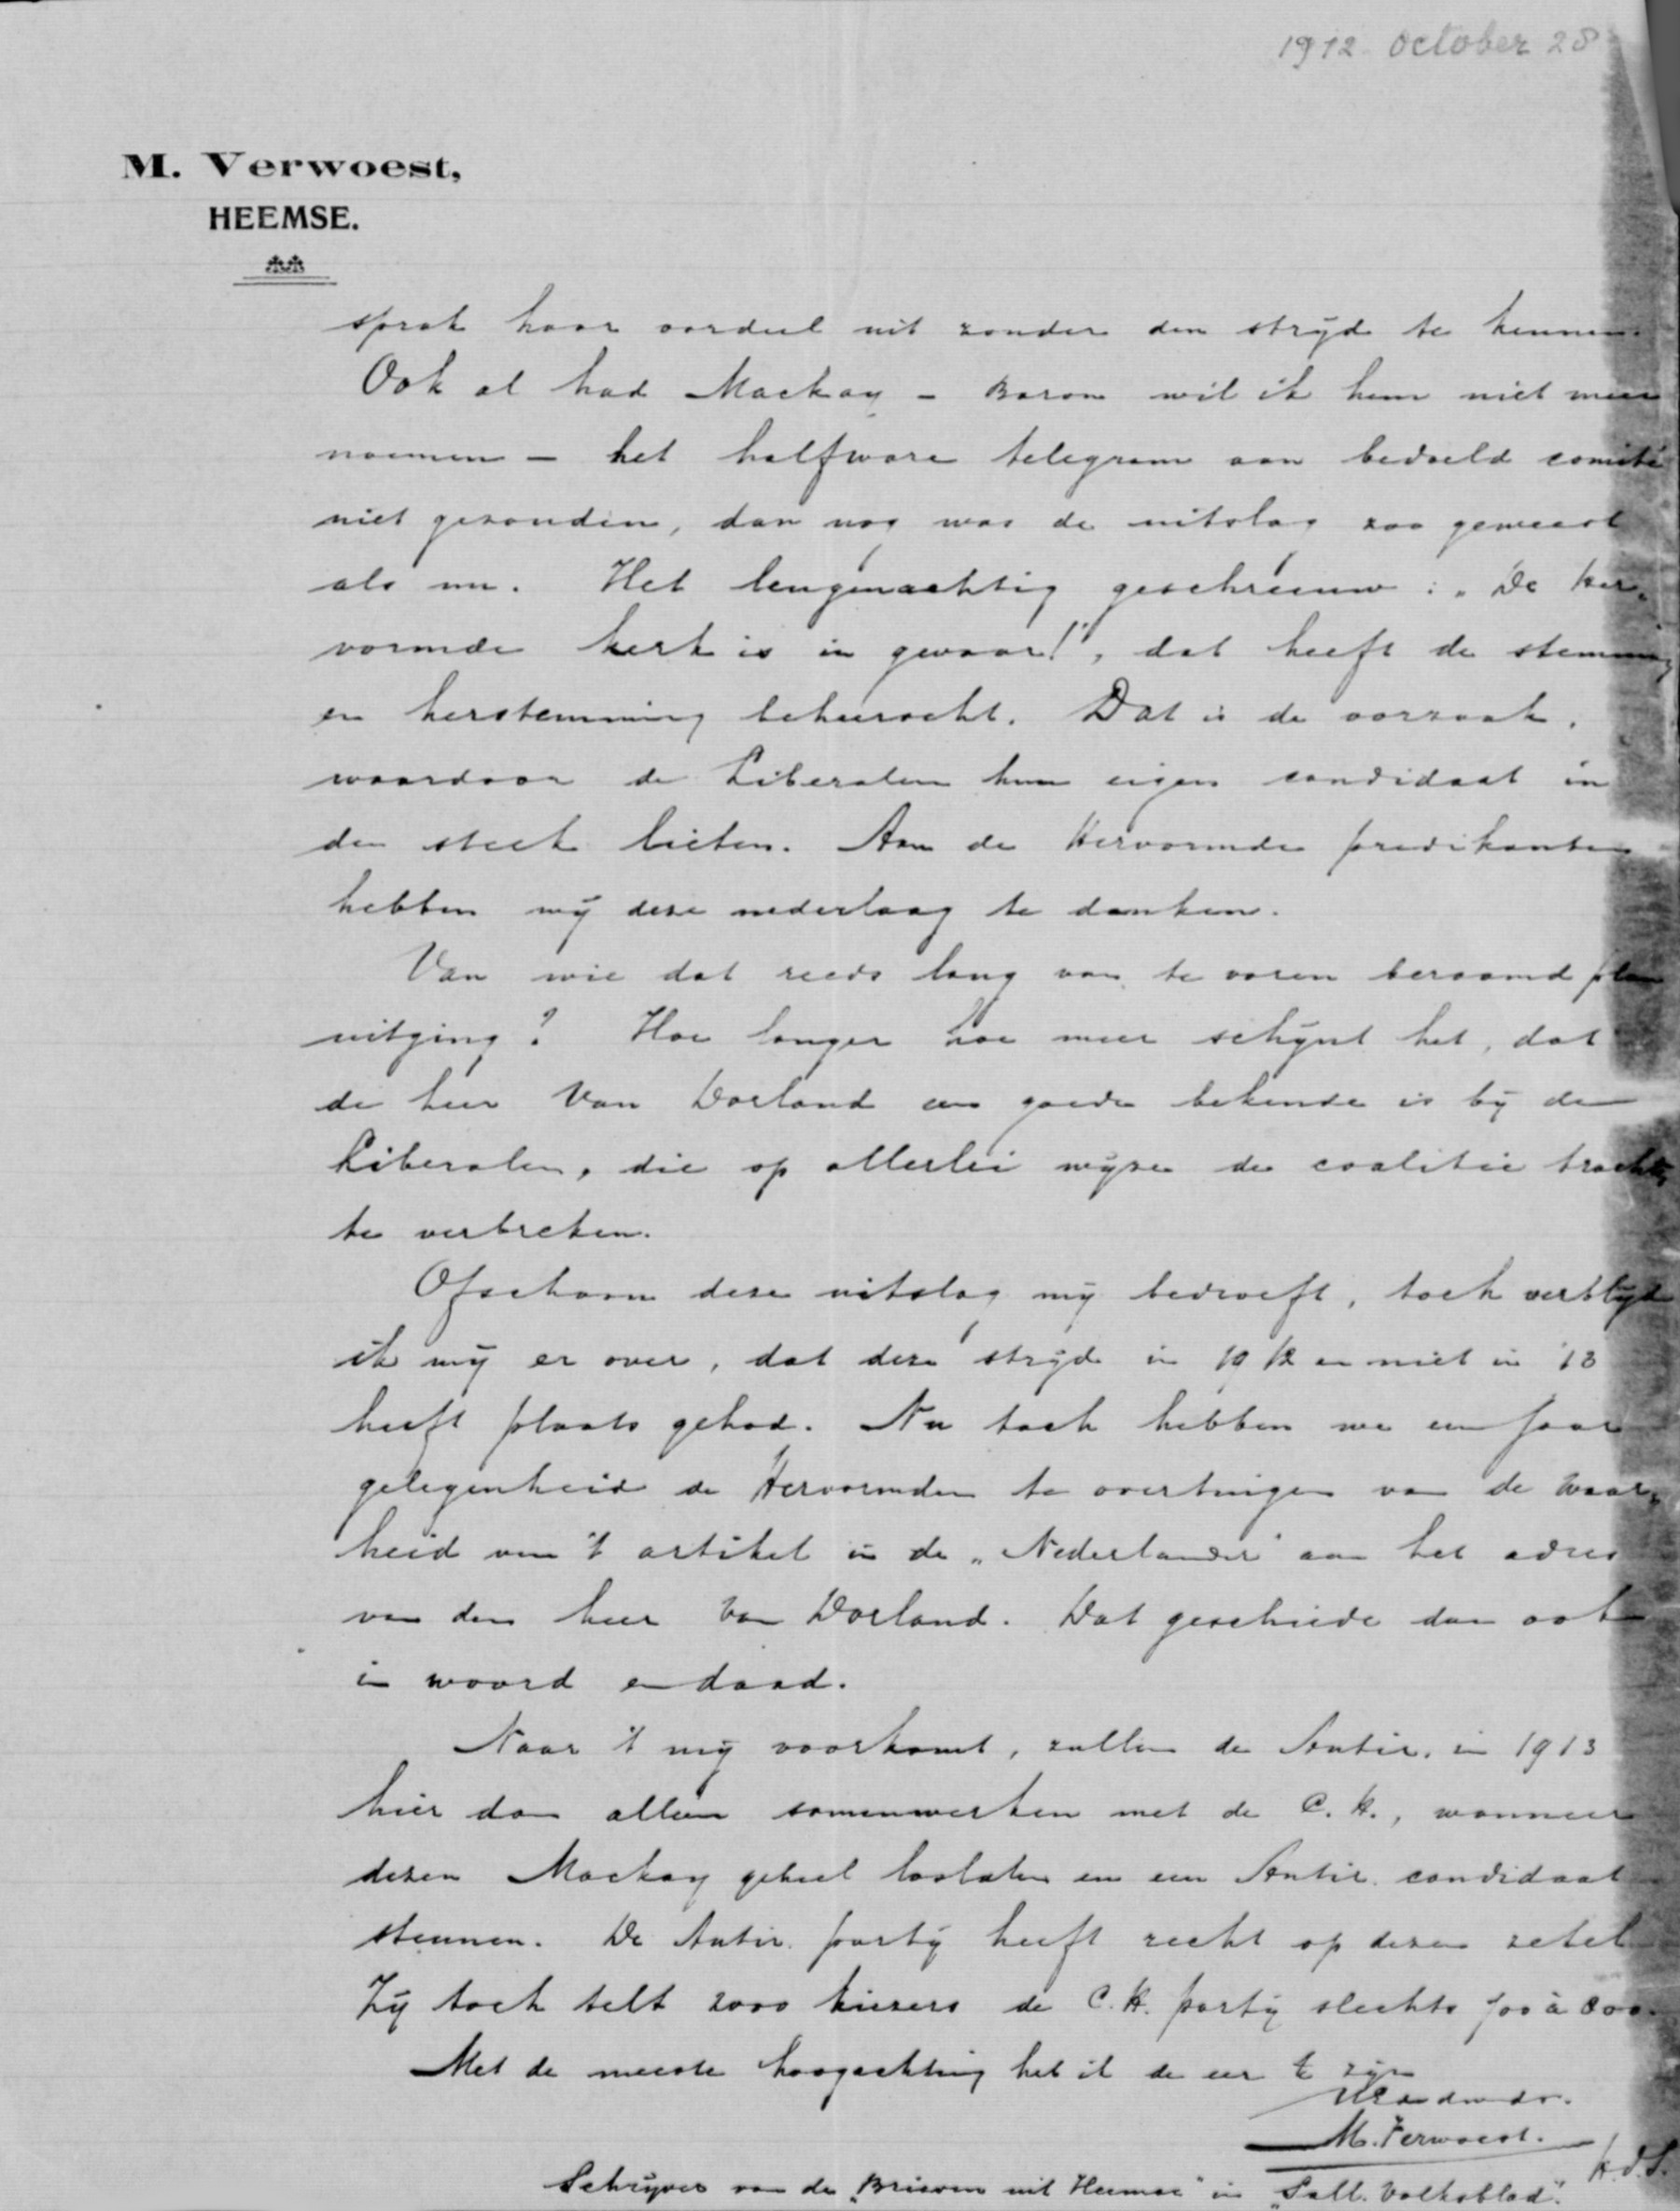 1912 October 28
M. Verwoest,
HEEMSE.
sprak haar oordeel uit zonder den strijd te kennen.
Ook al had Mackay - Baron wil ik hem niet meer
noemen - het halfware telegram aan bedoeld comité
niet gezonden, dan nog was de uitslag zoo geweest
als nu. Het leugenachtig geschreeuw: "De Her-
vormde kerk is in gevaar!", dat heeft de stemming
en herstemming beheerscht. Dat is de oorzaak,
waardoor de Liberalen hun eigen candidaat in
den steek lieten. Aan de Hervormde predikanten
hebben wij deze nederlaag te danken.
Van wie dat reeds lang van te voren beraamd plan
uitging? Hoe langer hoe meer schijnt het, dat
de heer Van Dorland een goede bekende is bij de
Liberalen, die op allerlei wijzen de coalitie trachten
te verbreken.
Ofschoon deze uitslag mij bedroeft, toch verblijd
ik mij er over, dat deze strijd in 1912 en niet in '13
heeft plaats gehad. Nu toch hebben we een jaar
gelegenheid de Hervormden te overtuigen van de waar-
heid van 't artikel in de "Nederlander" aan het adres
van den heer Van Dorland. Dat geschiede dan ook
in woord en daad.
Naar 't mij voorkomt, zullen de Antir. in 1913
hier dan alleen samenwerken met de C.H., wanneer
dezen Mackay geheel loslaten en een Antir. candidaat
steunen. De Antir. partij heeft recht op dezen zetel
Zij toch telt 2000 kiezers de C.H. partij slechts 700 à 800.
Met de meeste hoogachting heb ik de eer te zijn
M. Verwoest.
Schrijver van de "Brieven uit Heemse" in "Sall. Volksblad".